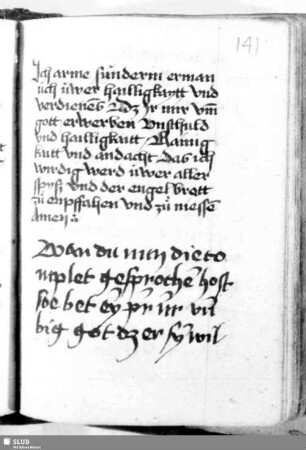 141
Ich arme sünderin erman
üch üwer hailligkaytt vnd
verdienens dz ir mir vm
gott erwerben vnschuld
vnd hailligkatt Rainig
katt vnd andacht das ich
wirdig werd üwer aller
spys vnd der engel brott
zü enpffahen vnd zü niessen
Amen
Wan du nun die co
mplet gesprochē host
soe bet ey pr nr vn
big got dz er sy wil
SLUB
Wir führen Wissen.